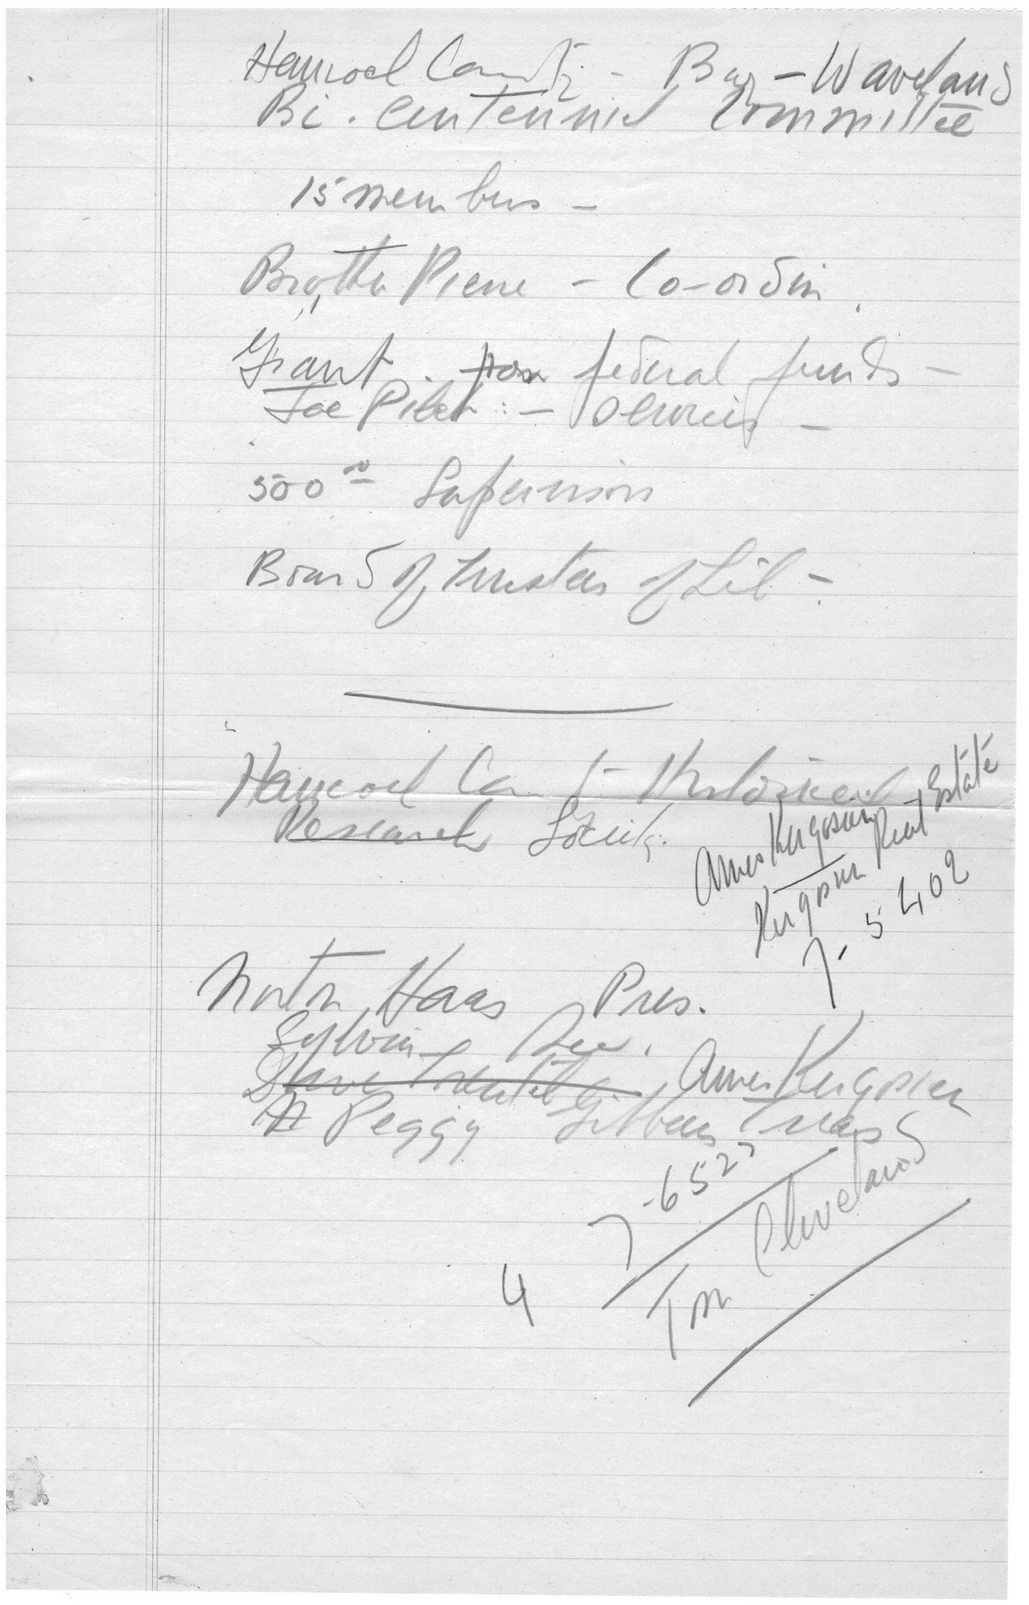 Hancock County - Bay - Waveland
Bi. Centennial Committee
15 members -
Brother Pierre - Co-ordin.
Grant. from federal funds -
Joe Pilet -
500 Supervisors
Board of Trustees of Lib -
Hancock County Historical
Research Society.
Ames Kergosien
Kergosien Real Estate
7-5402
Norton Haas Pres.
Sylvia Sec.
Ames Kergosien
Peggy Gibbens Treas
7-6527
4
Tom Cleveland